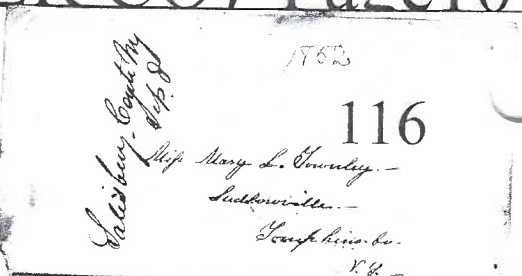 1852
116
Salisbury Centre NY
Sep 21
Miss Mary L. Townley. —
Ludlowville. —
Tompkins. Co.
N. Y. —